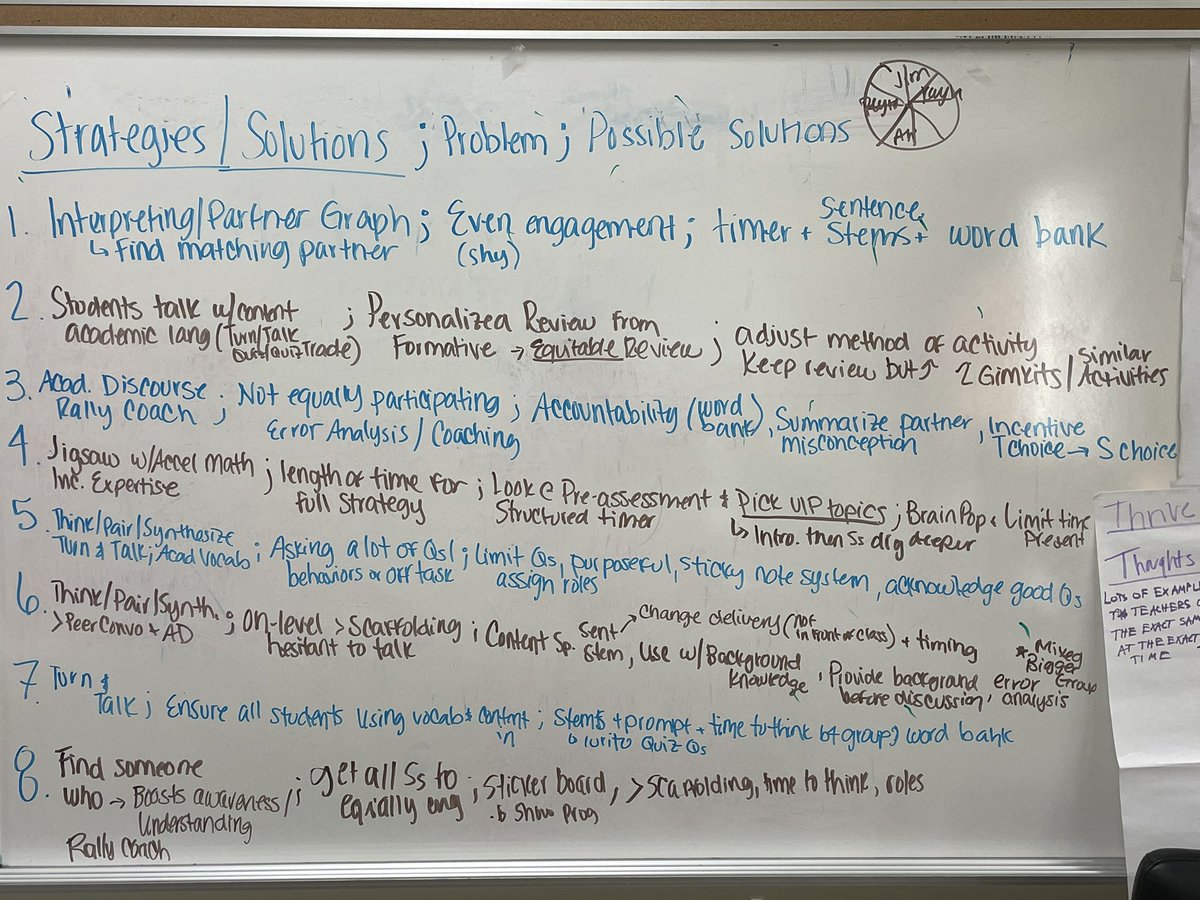 Jim
Strategies/Solutions ; Problem ; Possible Solutions
Art
1. Interpreting/Partner Graph ; Even engagement ; timer + Sentence Stems + word bank
↳ Find matching partner (shy)
2. Students talk w/content ; Personalized Review from ; adjust method of activity
academic lang (Turn/Talk Quiz/Quiz Trade) Formative → Equitable Review Keep review but ↑ 2 Gimkits/Similar Activities
3. Acad. Discourse ; Not equally participating ; Accountability (word bank), Summarize partner, Incentive
Rally Coach Error Analysis / Coaching misconception Tchoice → S choice
4. Jigsaw w/Accel Math ; length of time for ; Look @ Pre-assessment & Pick VIP topics ; BrainPop & Limit time
Inc. Expertise full Strategy Structured timer ↳ Intro. then Ss dig deeper Present
5. Think/Pair/Synthesize
Turn & Talk; Acad Vocab ; Asking a lot of Qs/ ; Limit Qs, purposeful, sticky note system, acknowledge good Qs
behaviors or off task assign roles
6. Think/Pair/Synth. ; On-level > Scaffolding ; Content Sp. Sent stem, → Change delivery (not in front of class) + timing
> Peer Convo & AD hesitant to talk Use w/Background Knowledge, Provide background before discussion, error analysis
* Mixed Bigger Group
7. Turn &
Talk ; Ensure all students using vocab & content ; Stems + prompt + time to think b4 group, word bank
↳ write Quiz Qs
8. Find someone
who → Boosts awareness/ ; get all Ss to ; Sticker board, > Scaffolding, time to think, roles
Understanding equally eng ↳ Show Prog
Rally Coach
Thrive
Thoughts
LOTS OF EXAMPLE
TEACHERS
THE EXACT SAM
AT THE EXACT
TIME